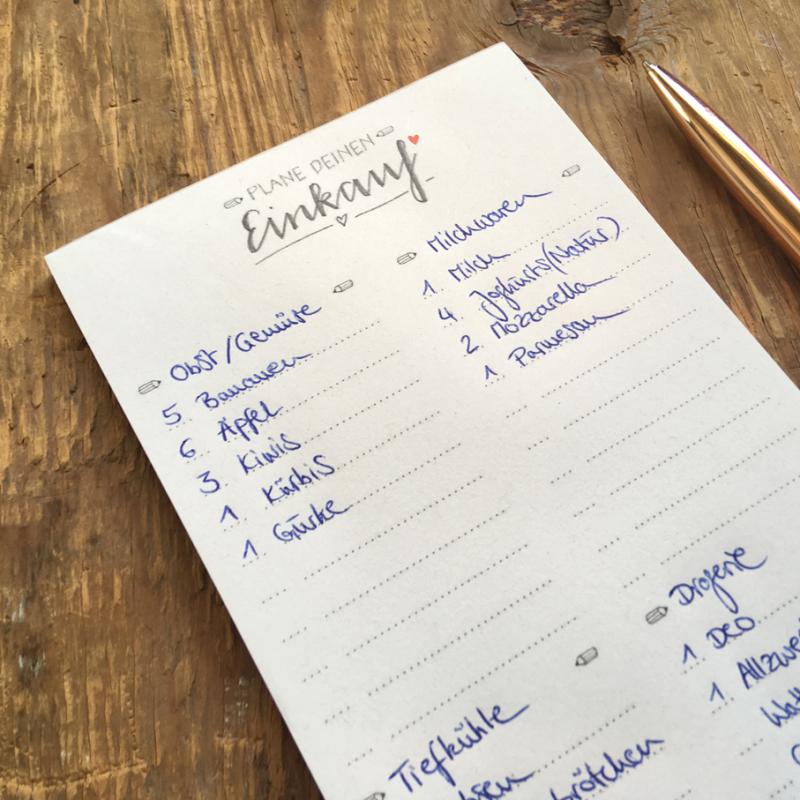 PLANE DEINEN
Einkauf
Obst/Gemüse
5 Bananen
6 Äpfel
3 Kiwis
1 Kürbis
1 Gurke
Milchwaren
1 Milch
4 Joghurts (Natur)
2 Mozzarella
1 Parmesan
Tiefkühle
Drogerie
1 DEO